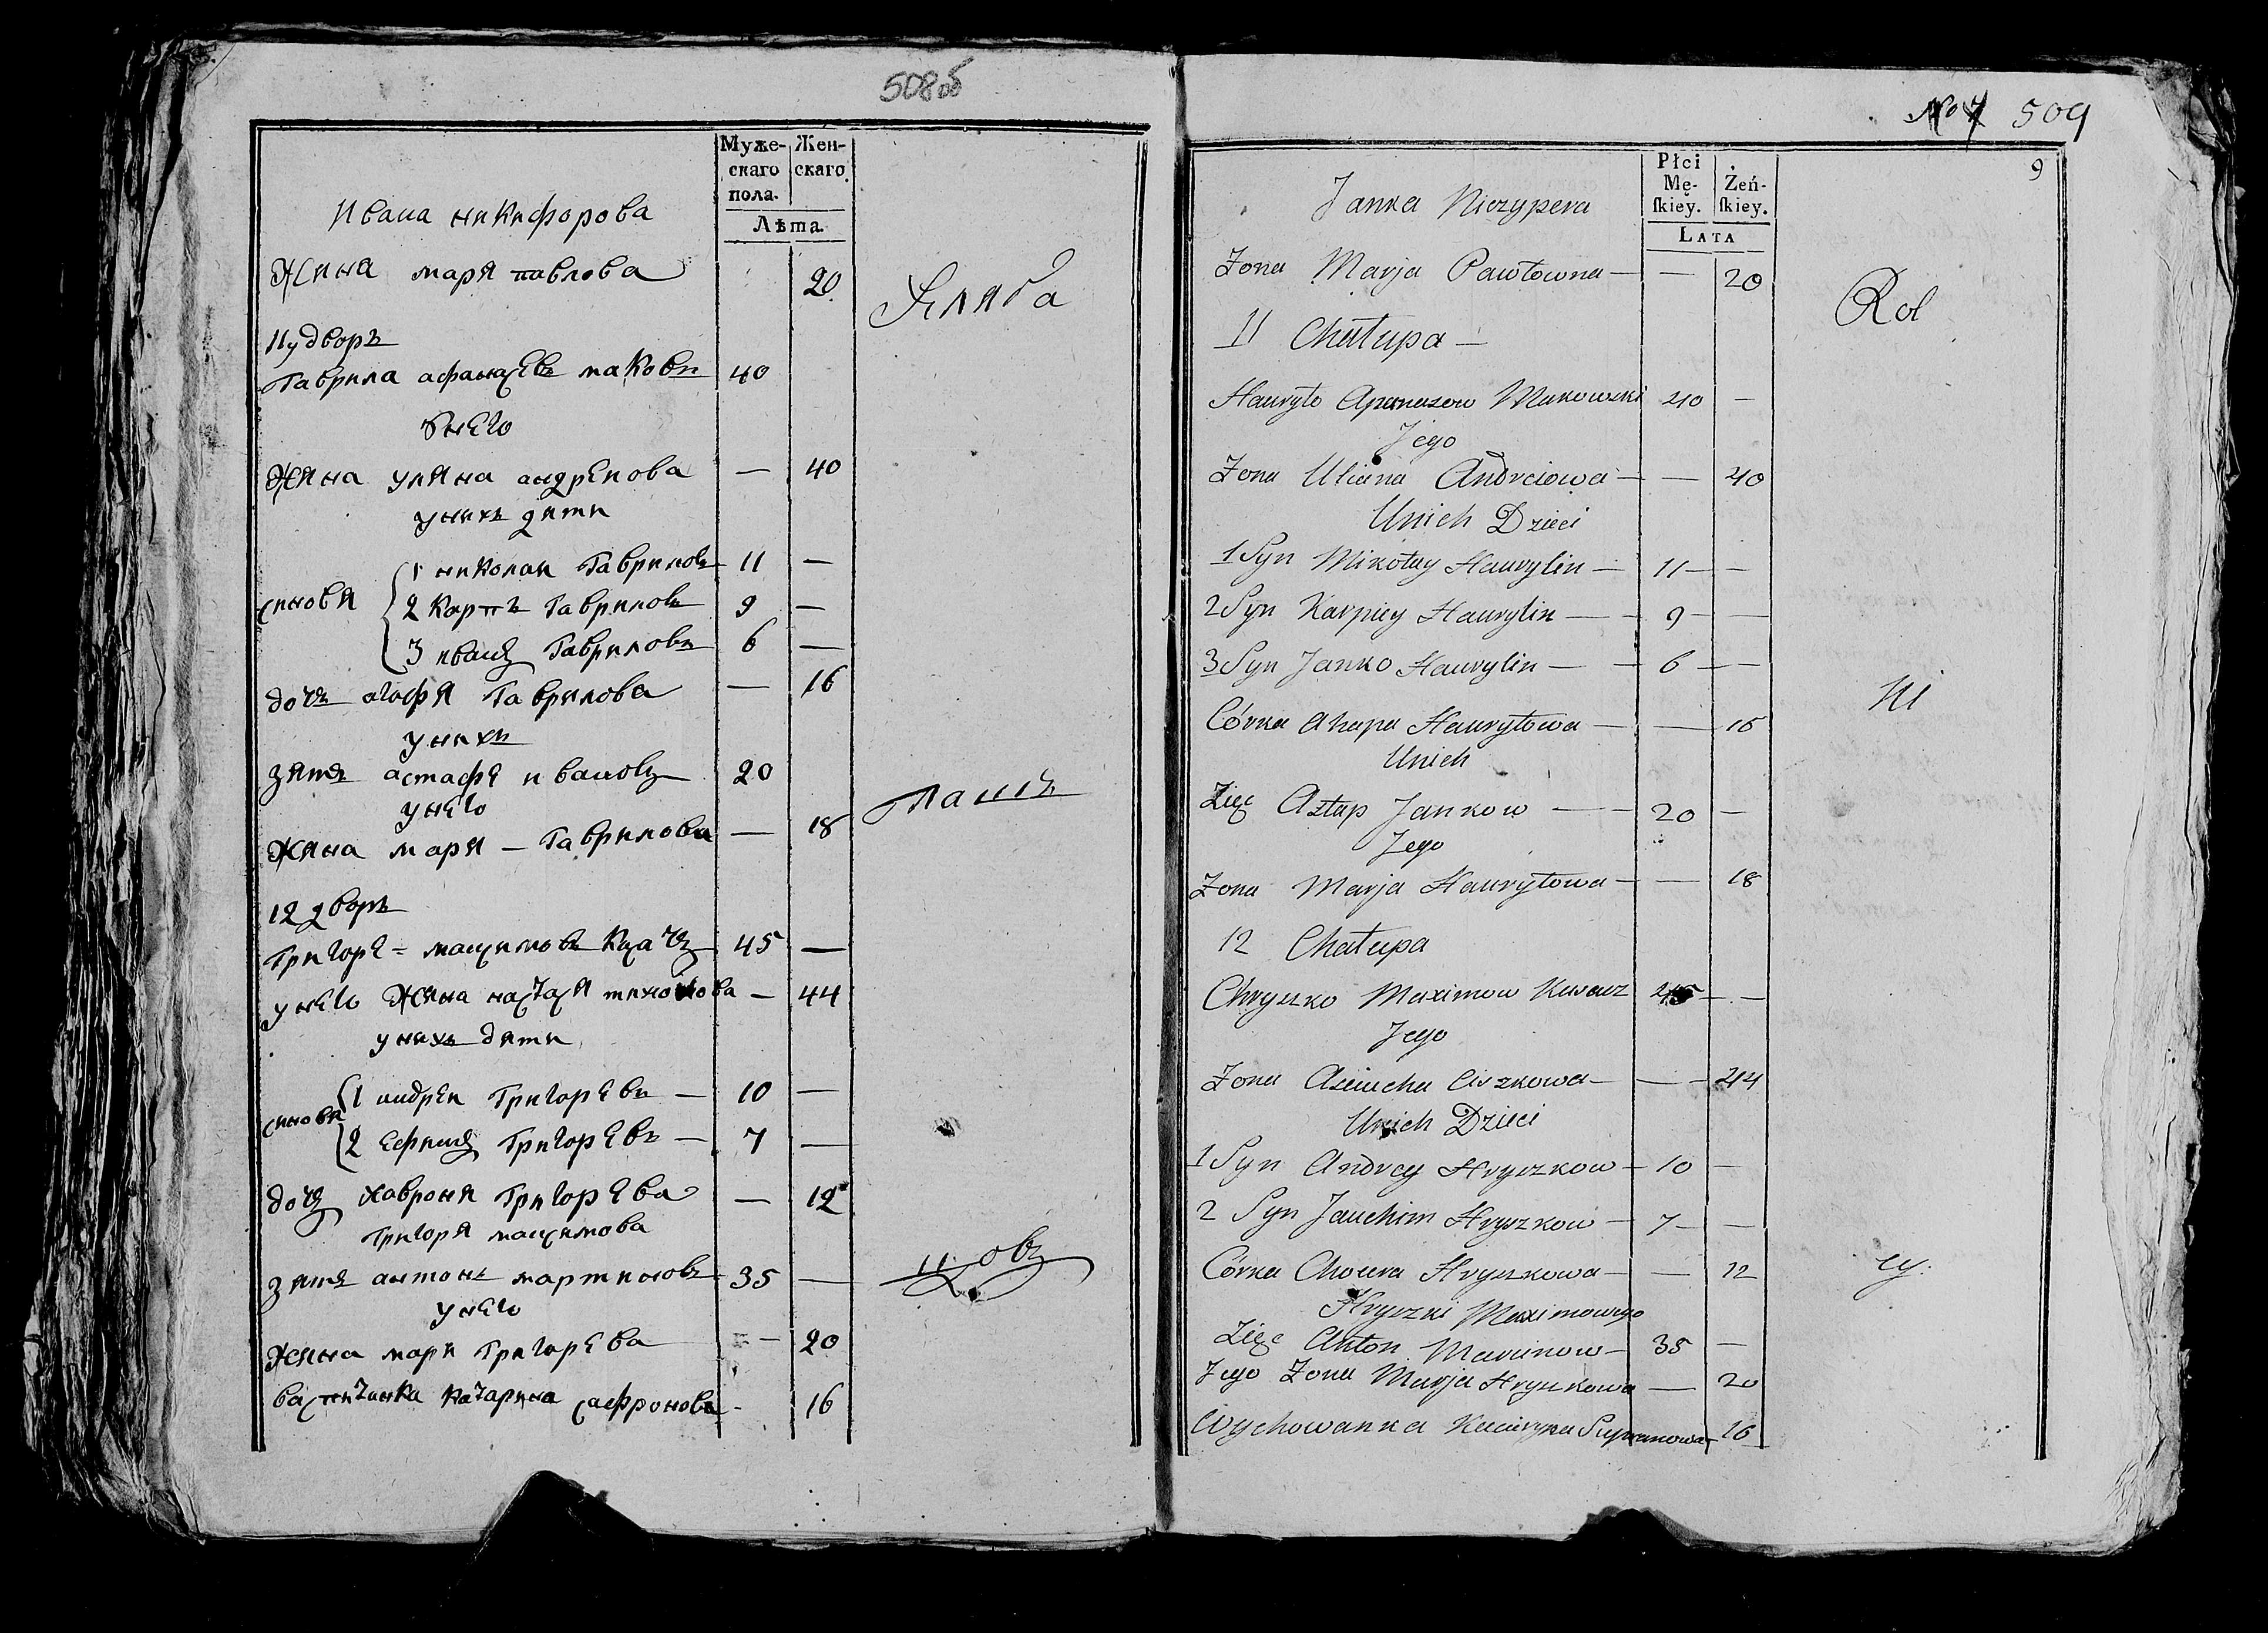 508об
Муже- Жен-
скаго скаго.
пола.
Лѣта.
Ивана никифорова
Жяна маря павлова 20
11 дворъ
Гаврила афанасевъ маковъ 40
унего
Жяна уляна андреиова — 40
унихъ дяти
синовя
1 николаи Гавриловъ 11 —
2 Карпъ Гавриловъ 9 —
3 иванъ Гавриловъ 6 —
дочъ агафя Гаврилова — 16
унихъ
зятя астафе ивановъ 20
унего
Жяна маря — Гаврилова — 18
12 дворъ
Григоре = масимовъ 45 —
унего Жяна настася тихонова — 44
унихъ дяти
синовя
1 андреи Григоревъ — 10 —
2 ефимъ Григоревъ — 7 —
дочъ хавроня Григорева — 12
Григоря масимова
зятя антонъ мартиновъ 35 —
унего
Жяна маря Григорева — 20
васпитанка Катарина сафронова - 16
№ 7 509
9
Płci
Mę- Żeń-
skiey. skiey.
LATA
Janka Niczypera
Zona Marja Pawłowna — — 20
Rol
11 Chałupa —
Hauryło Apanasow Makowski 40 —
Jego
Zona Uliana Andreiowa — — 40
Unich Dzieci
1 Syn Mikołay Haurylin — 11 — —
2 Syn Karpiey Haurylin — 9 — —
3 Syn Janko Haurylin — — 6 — —
Ni
Córka Ahapa Hauryłowa — — 16
Unich
Zięć Astap Jankow — — 20 —
Jego
Zona Marja Hauryłowa — — 18
12 Chałupa
Chryszko Maximow 45 — —
Jego
Zona Ciszkowa — — 44
Unich Dzieci
1 Syn Andrey Hryszkow — 10 —
2 Syn Jauchim Hryszkow — 7 — —
Córka Chowra Hryszkowa — — 12
cy.
Hryszki Maximowego
Zięć Anton Marcinow — 35 —
Jego Zona Marja Hryszkowa — 20
Wychowanka Kaciaryna Supranowa — 16